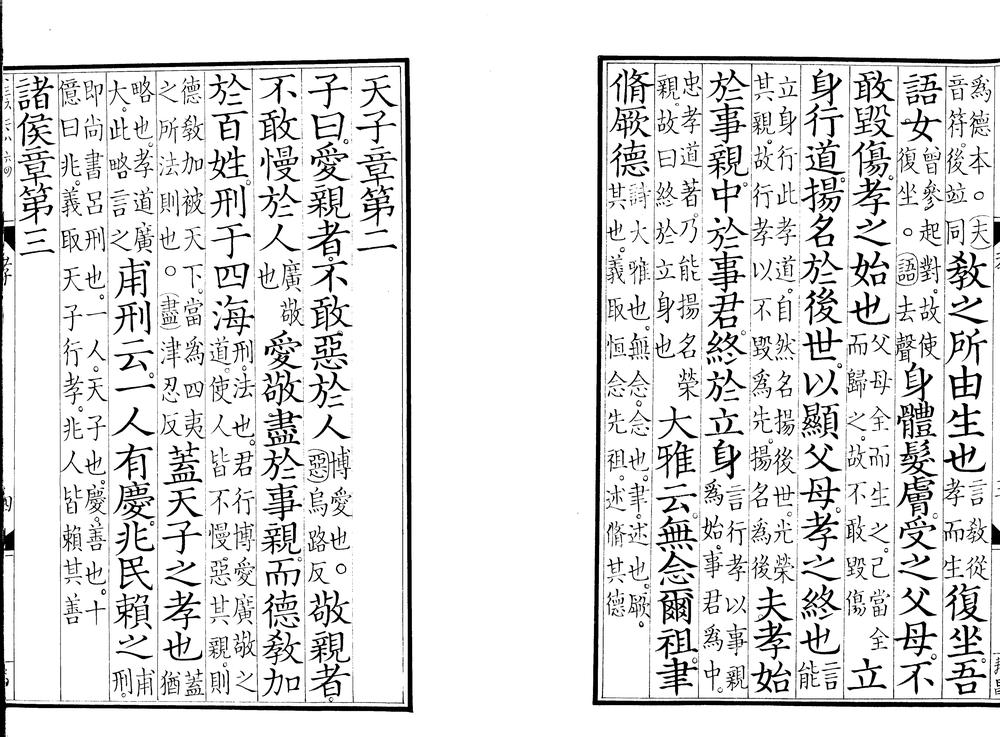 為德本○夫音符後竝同敎之所由生也言敎從孝而生復坐。吾
語女曾參起對。故使復坐。○語去聲身體髮膚。受之父母。不
敢毀傷。孝之始也父母全而生之。己當全而歸之。故不敢毀傷立
身行道。揚名於後世。以顯父母。孝之終也言能
立身行此孝道。自然名揚後世。光榮其親。故行孝以不毀為先。揚名為後夫孝始
於事親。中於事君。終於立身言行孝以事親為始。事君為中。
忠孝道著。乃能揚名榮親。故曰終於立身也大雅云。無念爾祖。聿
脩厥德詩大雅也。無念。念也。聿。述也。厥。其也。義取恒念先祖。述脩其德。
天子章第二
子曰。愛親者。不敢惡於人博愛也。○惡烏路反敬親者。
不敢慢於人廣敬也愛敬盡於事親。而德敎加
於百姓。刑于四海刑。法也。君行博愛廣敬之道。使人皆不慢惡其親。則
德敎加被天下。當為四夷之所法則也。○盡津忍反蓋天子之孝也蓋猶
略也。孝道廣大。此略言之甫刑云。一人有慶。兆民賴之甫刑。
即尚書呂刑也。一人。天子也。慶。善也。十億曰兆。義取天子行孝。兆人皆賴其善
諸侯章第三